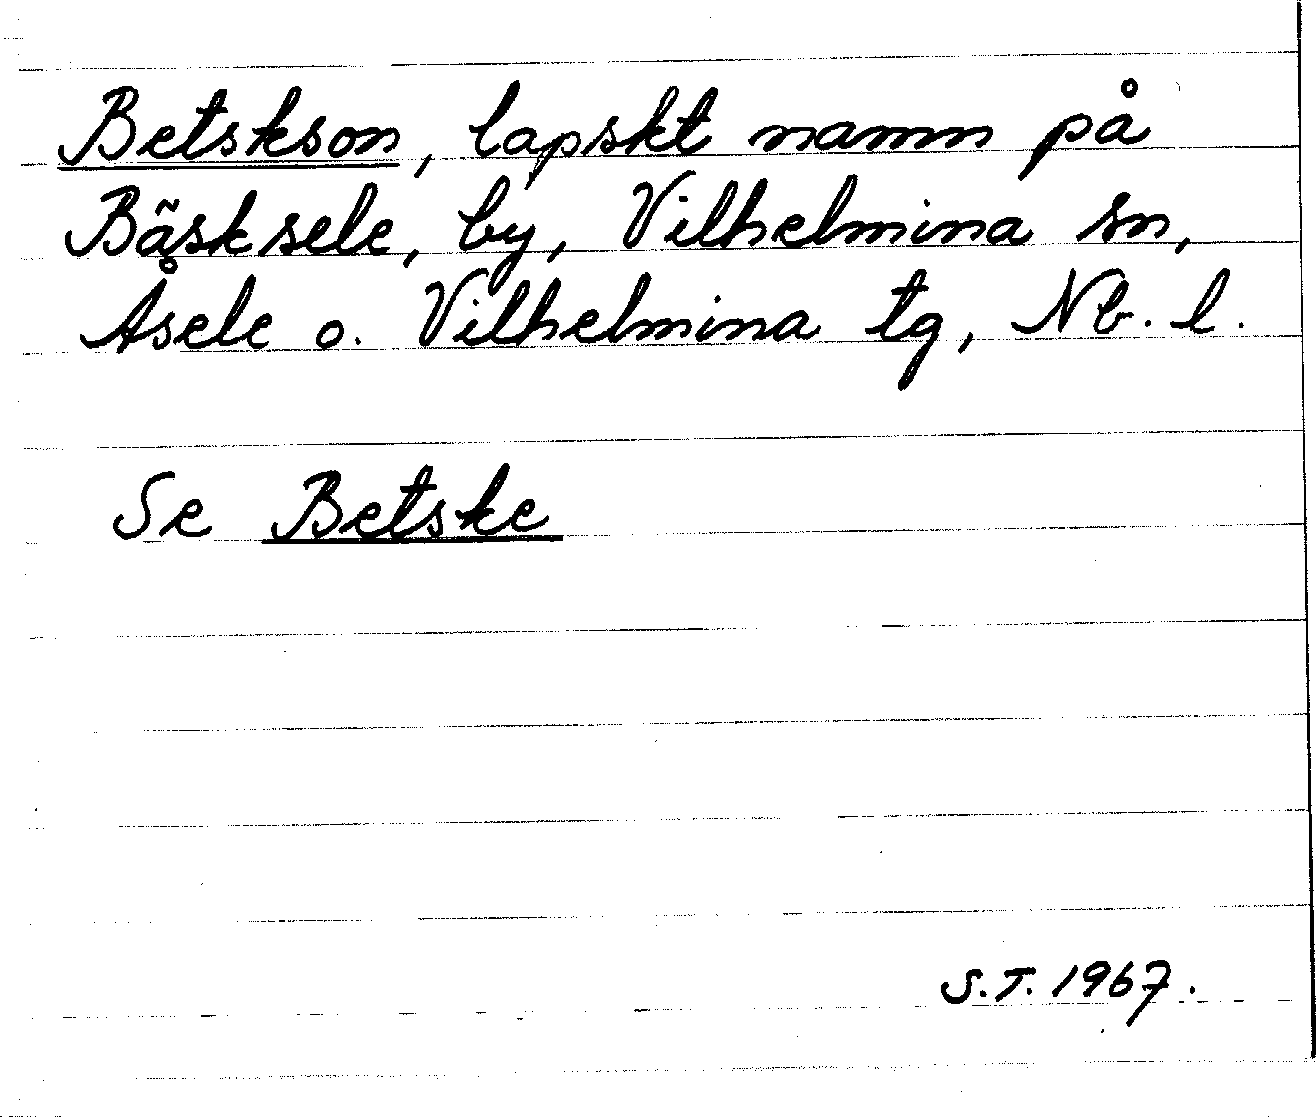 Betskson, lapskt namn på
Bäsksele, by, Vilhelmina sn,
Åsele o. Vilhelmina tg, Nb. l.
Se Betske
S.T. 1967.